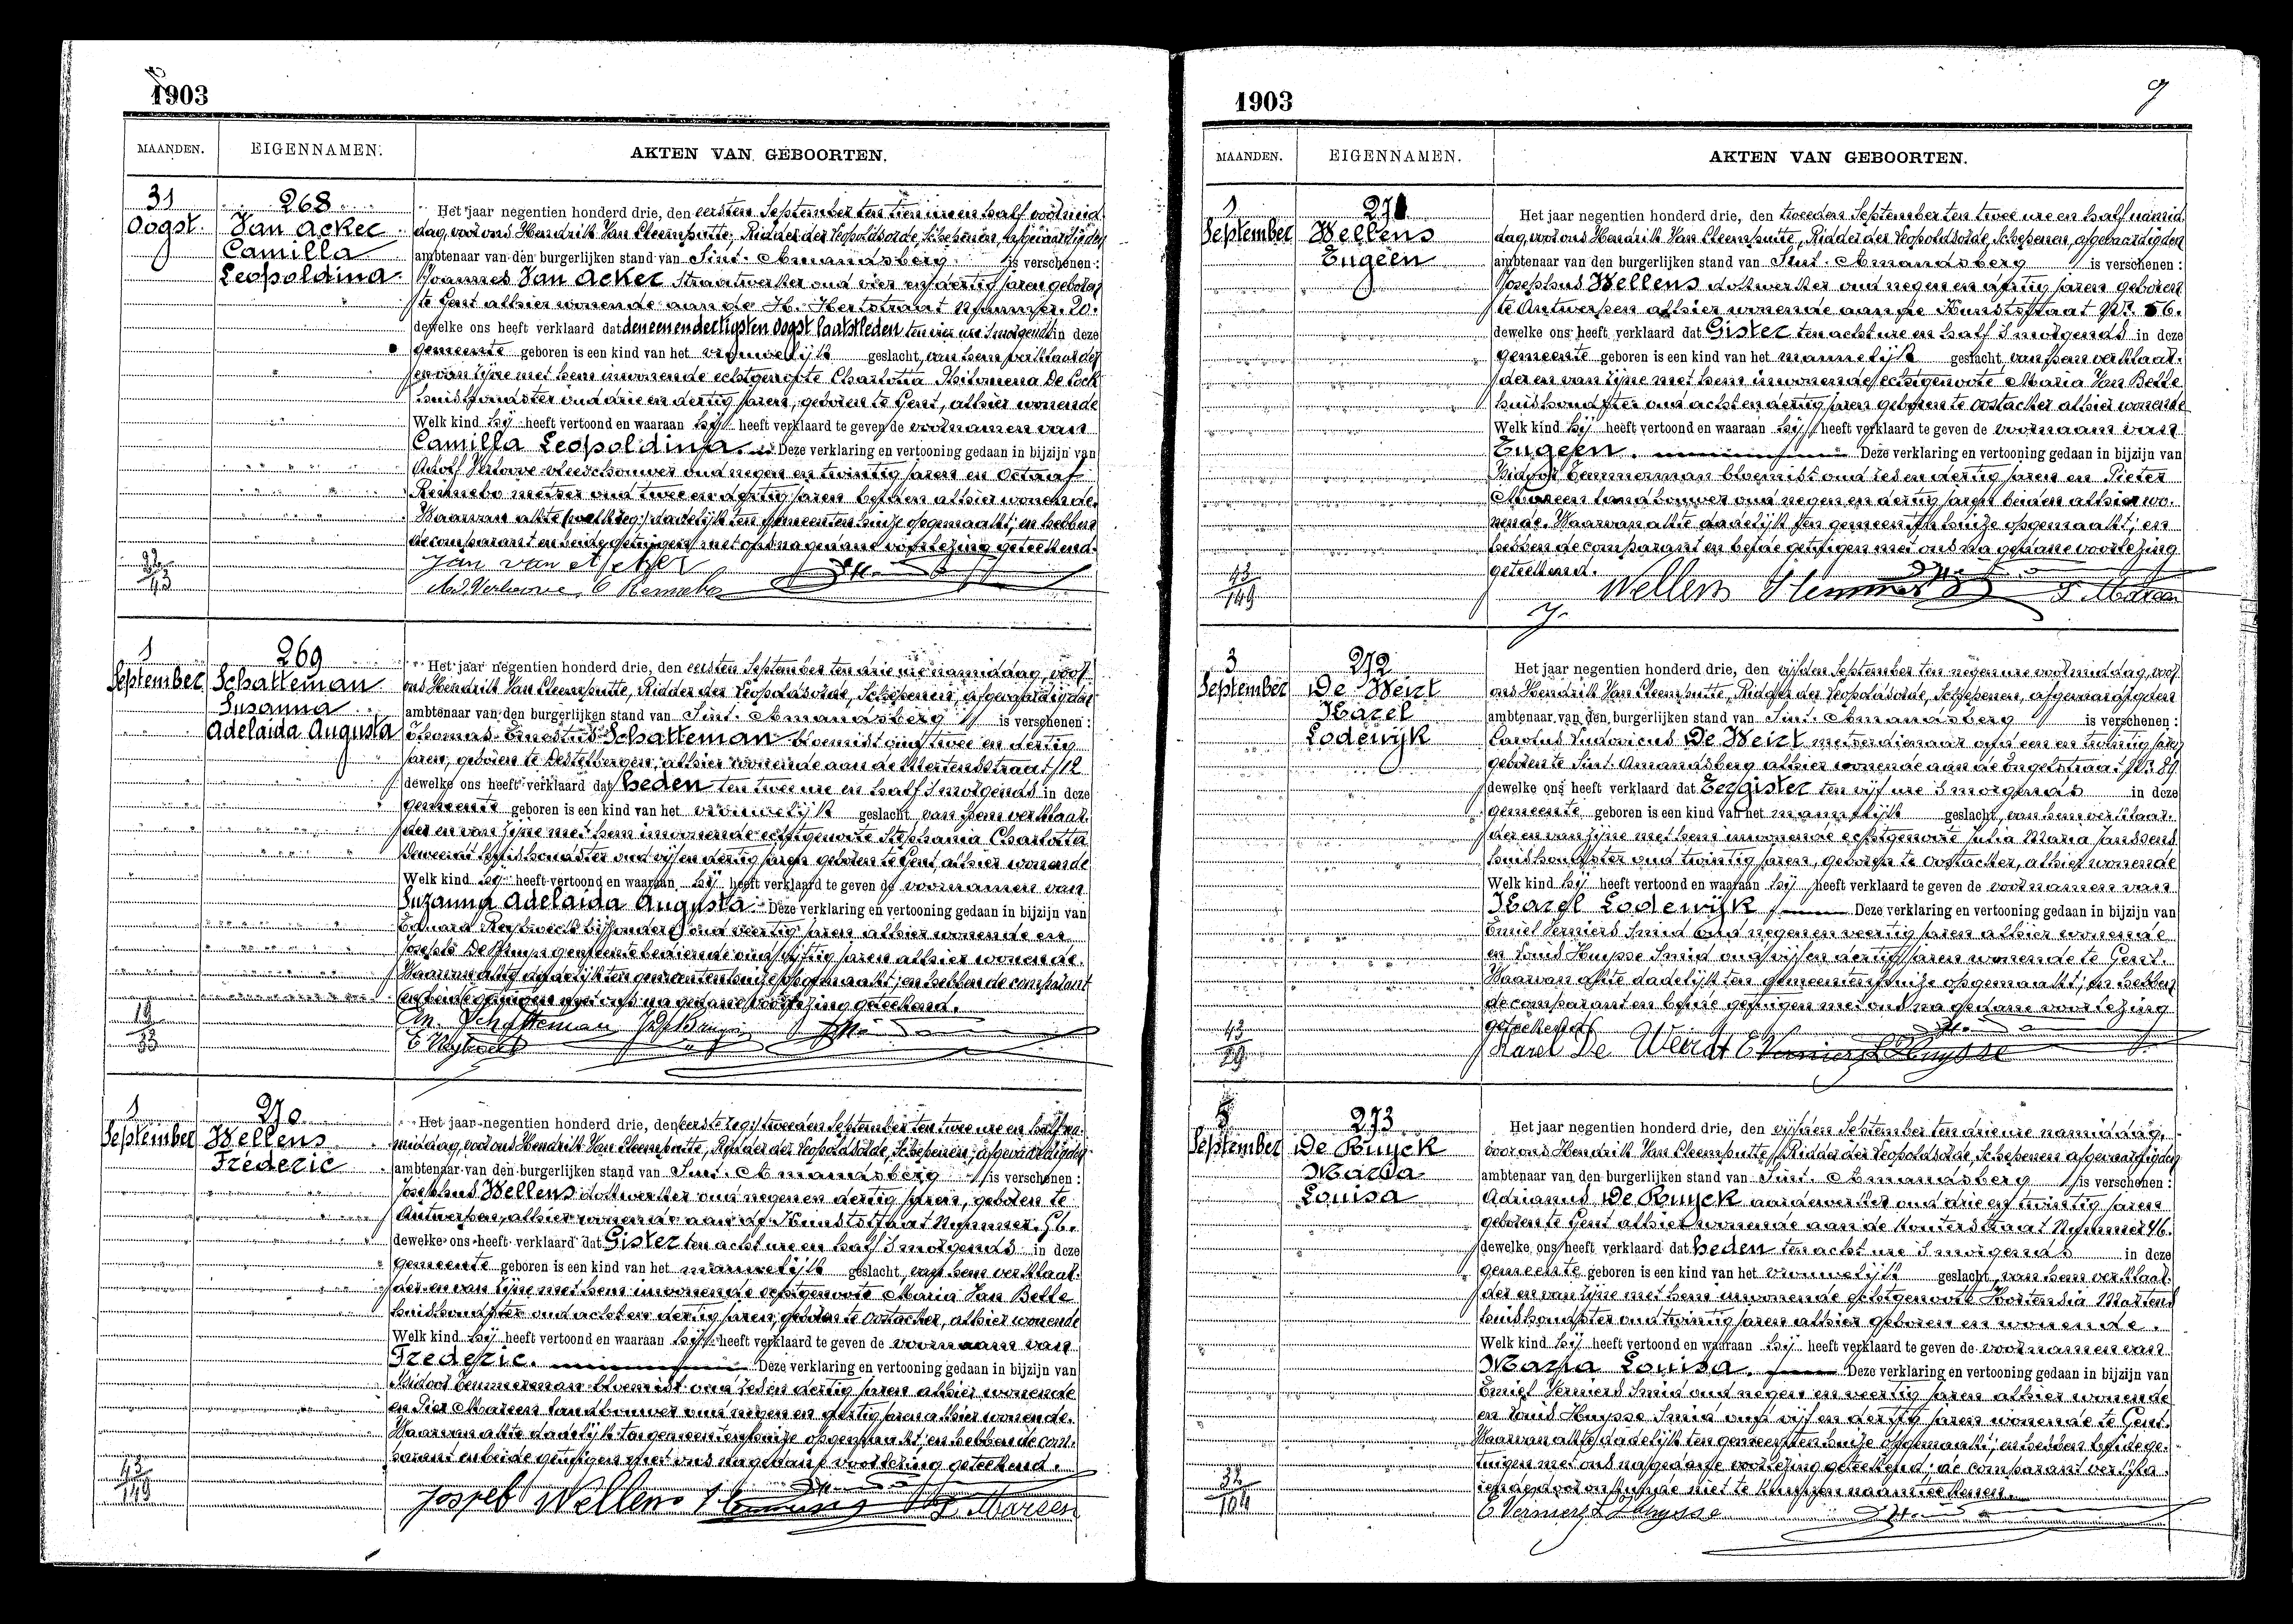 1903
MAANDEN. EIGENNAMEN. AKTEN VAN GEBOORTEN.
31 Oogst.
268
Van Acker
Camilla
Leopoldina
Het jaar negentien honderd drie, den eersten September ten tien ure en half voormid
dag, voor ons Hendrik Van Cleemputte, Ridder der Leopoldsorde, Schepenen, afgevaardigden
ambtenaar van den burgerlijken stand van Sint-Amandsberg is verschenen:
Joannes Van Acker straatwerker oud vier en dertig jaren geboren
te Gent alhier wonende aan de H. Hertstraat Nummer 20.
dewelke ons heeft verklaard dat den een en dertigsten Oogst laatstleden ten vier ure 's morgends in deze
gemeente geboren is een kind van het vrouwelijk geslacht, van hem verklaarder
en van zijne met hem inwonende echtgenote Charlotta Philomena De Cock
huishoudster oud drie en dertig jaren, geboren te Gent, alhier wonende
Welk kind hij heeft vertoond en waaraan hij heeft verklaard te geven de voornamen van
Camilla Leopoldina. Deze verklaring en vertooning gedaan in bijzijn van
Adolf Verlowe vleeschouwer oud negen en twintig jaren en Octaaf
Rennebo metser oud twee en dertig jaren beiden alhier wonende.
Waarvan akte dadelijk ten gemeentenhuize opgemaakt; en hebben
de comparant en beide getuigen met ons na gedane voorlezing geteekend.
Jan van Acker
Ad. Verlowe O Rennebo
1 September
269
Schatteman
Suzanna
Adelaida Augusta
Het jaar negentien honderd drie, den eersten September ten drie ure namiddag, voor
ons Hendrik Van Cleemputte, Ridder der Leopoldsorde, Schepenen, afgevaardigden
ambtenaar van den burgerlijken stand van Sint-Amandsberg is verschenen:
Thomas Ernestus Schatteman bloemist oud twee en dertig
jaren, geboren te Destelbergen, alhier wonende aan de Mertensstraat, 12
dewelke ons heeft verklaard dat heden ten twee ure en half 's morgends in deze
gemeente geboren is een kind van het vrouwelijk geslacht van hem verklaar-
der en van zijne met hem inwonende echtgenote Stephania Charlotta
huishoudster oud vijf en dertig jaren geboren te Gent, alhier wonende
Welk kind hij heeft vertoond en waaraan hij heeft verklaard te geven de voornamen van
Suzanna Adelaida Augusta Deze verklaring en vertooning gedaan in bijzijn van
bijzondere oud veertig jaren alhier wonende en
Josephs De Bruyn gemeente bediende oud vijftig jaren alhier wonende.
Waarvan akte dadelijk ten gemeentenhuize opgemaakt; en hebben de comparant
en beide getuigen met ons na gedane voorlezing geteekend.
Schatteman
19
33
1 September
270
Wellens
Frederic
Het jaar negentien honderd drie, den eerste (zegge) tweeden September ten twee ure en half na-
middag, voor ons Hendrik Van Cleemputte, Ridder der Leopoldsorde, Schepenen, afgevaardigden
ambtenaar van den burgerlijken stand van Sint-Amandsberg is verschenen:
Josephus Wellens dokwerker oud negen en dertig jaren, geboren te
Antwerpen, alhier wonende aan de Kunststraat Nummer 56.
dewelke ons heeft verklaard dat Gister ten acht ure en half 's morgends in deze
gemeente geboren is een kind van het mannelijk geslacht van hem verklaar-
der en van zijne met hem inwonende echtgenoote Maria Van Belle
huishoudster oud acht en dertig jaren, geboren te Oostacker, alhier wonende
Welk kind hij heeft vertoond en waaraan hij heeft verklaard te geven de voornaam van
Frederic. Deze verklaring en vertooning gedaan in bijzijn van
Isidoor Temmerman bloemist oud zes en dertig jaren alhier wonende
en Pier Mareen landbouwer oud negen en dertig jaren alhier wonende.
Waarvan akte dadelijk ten gemeentenhuize opgemaakt; en hebben de com-
parant en beide getuigen met ons na gedane voorlezing geteekend.
43
149
Joseph Wellens
1903
MAANDEN. EIGENNAMEN. AKTEN VAN GEBOORTEN.
1 September
271
Wellens
Eugeen
Het jaar negentien honderd drie, den tweeden September ten twee ure en half namid
dag, voor ons Hendrik Van Cleemputte, Ridder der Leopoldsorde, Schepenen, afgevaardigden
ambtenaar van den burgerlijken stand van Sint-Amandsberg is verschenen:
Josephus Wellens dokwerker oud negen en dertig jaren geboren
te Antwerpen alhier wonende aan de Kunststraat Nr. 56.
dewelke ons heeft verklaard dat Gister ten acht ure en half 's morgends in deze
gemeente geboren is een kind van het mannelijk geslacht van hem verklaar-
der en van zijne met hem inwonende echtgenoote Maria Van Belle
huishoudster oud acht en dertig jaren geboren te Oostacker alhier wonende
Welk kind hij heeft vertoond en waaraan hij heeft verklaard te geven de voornaam van
Eugeen. Deze verklaring en vertooning gedaan in bijzijn van
Isidoor Temmerman bloemist oud zes en dertig jaren en Pieter
Mareen landbouwer oud negen en dertig jaren beiden alhier wo-
nende. Waarvan akte dadelijk ten gemeentenhuize opgemaakt; en
hebben de comparant en beide getuigen met ons na gedane voorlezing
geteekend.
43
149
Wellens
3 September
272
De Weirt
Karel
Lodewijk
Het jaar negentien honderd drie, den vijfden September ten negen ure voormiddag, voor
ons Hendrik Van Cleemputte, Ridder der Leopoldsorde, Schepenen, afgevaardigden
ambtenaar van den burgerlijken stand van Sint-Amandsberg is verschenen:
Carolus Ludovicus De Weirt metserdienaar oud een en twintig jaren
geboren te Sint-Amandsberg alhier wonende aan de Engelstraat Nr. 89
dewelke ons heeft verklaard dat Eergister ten vijf ure 's morgends in deze
gemeente geboren is een kind van het mannelijk geslacht, van hem verklaar-
der en van zijne met hem inwonende echtgenoote Julia Maria Janssens
huishoudster oud twintig jaren, geboren te Oostacker, alhier wonende
Welk kind hij heeft vertoond en waaraan hij heeft verklaard te geven de voornamen van
Karel Lodewijk Deze verklaring en vertooning gedaan in bijzijn van
Emiel Verniers Smid oud negen en veertig jaren alhier wonende
en Louis Huysse Smid oud vijf en dertig jaren wonende te Gent.
Waarvan akte dadelijk ten gemeentenhuize opgemaakt; en hebben
de comparant en beide getuigen met ons na gedane voorlezing
geteekend
43
29
Karel De Weirdt E Verniers L Huysse
5 September
273
De Buyck
Maria
Louisa
Het jaar negentien honderd drie, den vijfden September ten drie ure namiddag,
voor ons Hendrik Van Cleemputte, Ridder der Leopoldsorde, Schepenen afgevaardigden
ambtenaar van den burgerlijken stand van Sint-Amandsberg is verschenen:
Adrianus De Buyck aardewerker oud drie en twintig jaren
geboren te Gent alhier wonende aan de Kouterstraat Nummer 46.
dewelke ons heeft verklaard dat heden ten acht ure 's morgends in deze
gemeente geboren is een kind van het vrouwelijk geslacht, van hem verklaar-
der en van zijne met hem inwonende echtgenoote Hortensia Martens
huishoudster oud twintig jaren alhier geboren en wonende.
Welk kind hij heeft vertoond en waaraan hij heeft verklaard te geven de voornamen van
Maria Louisa. Deze verklaring en vertooning gedaan in bijzijn van
Emiel Verniers Smid oud negen en veertig jaren alhier wonende
en Louis Huysse Smid oud vijf en dertig jaren wonende te Gent.
Waarvan akte dadelijk ten gemeentenhuize opgemaakt; en hebben beide ge-
tuigen met ons na gedane voorlezing geteekend; de comparant verkla-
rende niet te kunnen naamteekenen.
32
104
E Verniers L Huysse